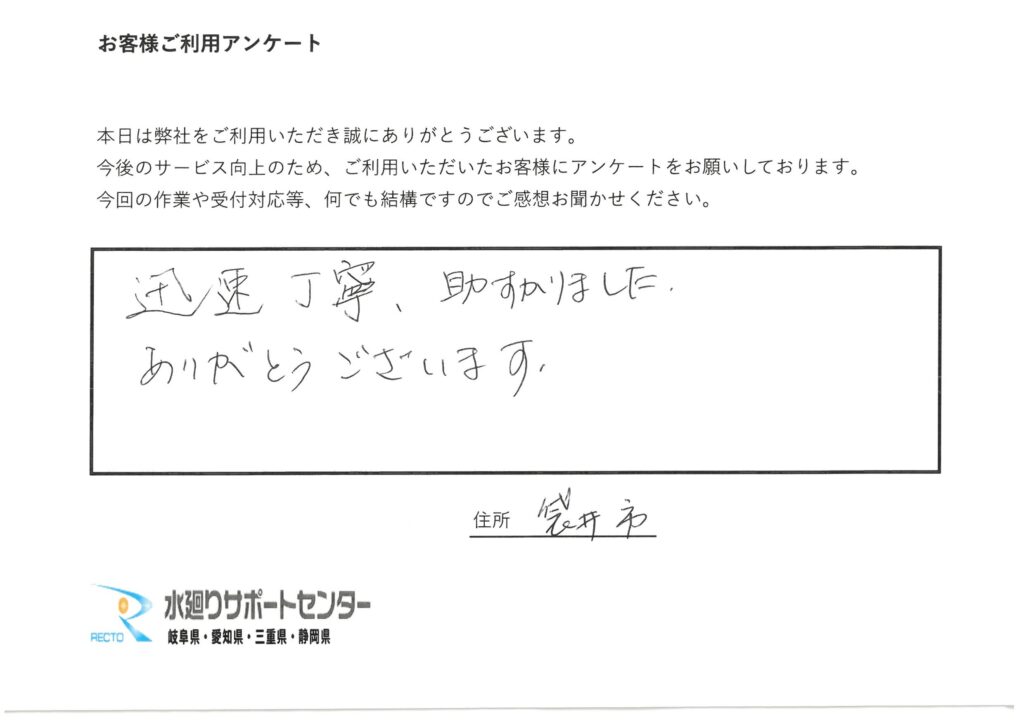 お客様ご利用アンケート
本日は弊社をご利用いただき誠にありがとうございます。
今後のサービス向上のため、ご利用いただいたお客様にアンケートをお願いしております。
今回の作業や受付対応等、何でも結構ですのでご感想お聞かせください。
迅速丁寧、助すかりました.
ありがとうございます.
住所 袋井市
RECTO 水廻りサポートセンター
岐阜県・愛知県・三重県・静岡県